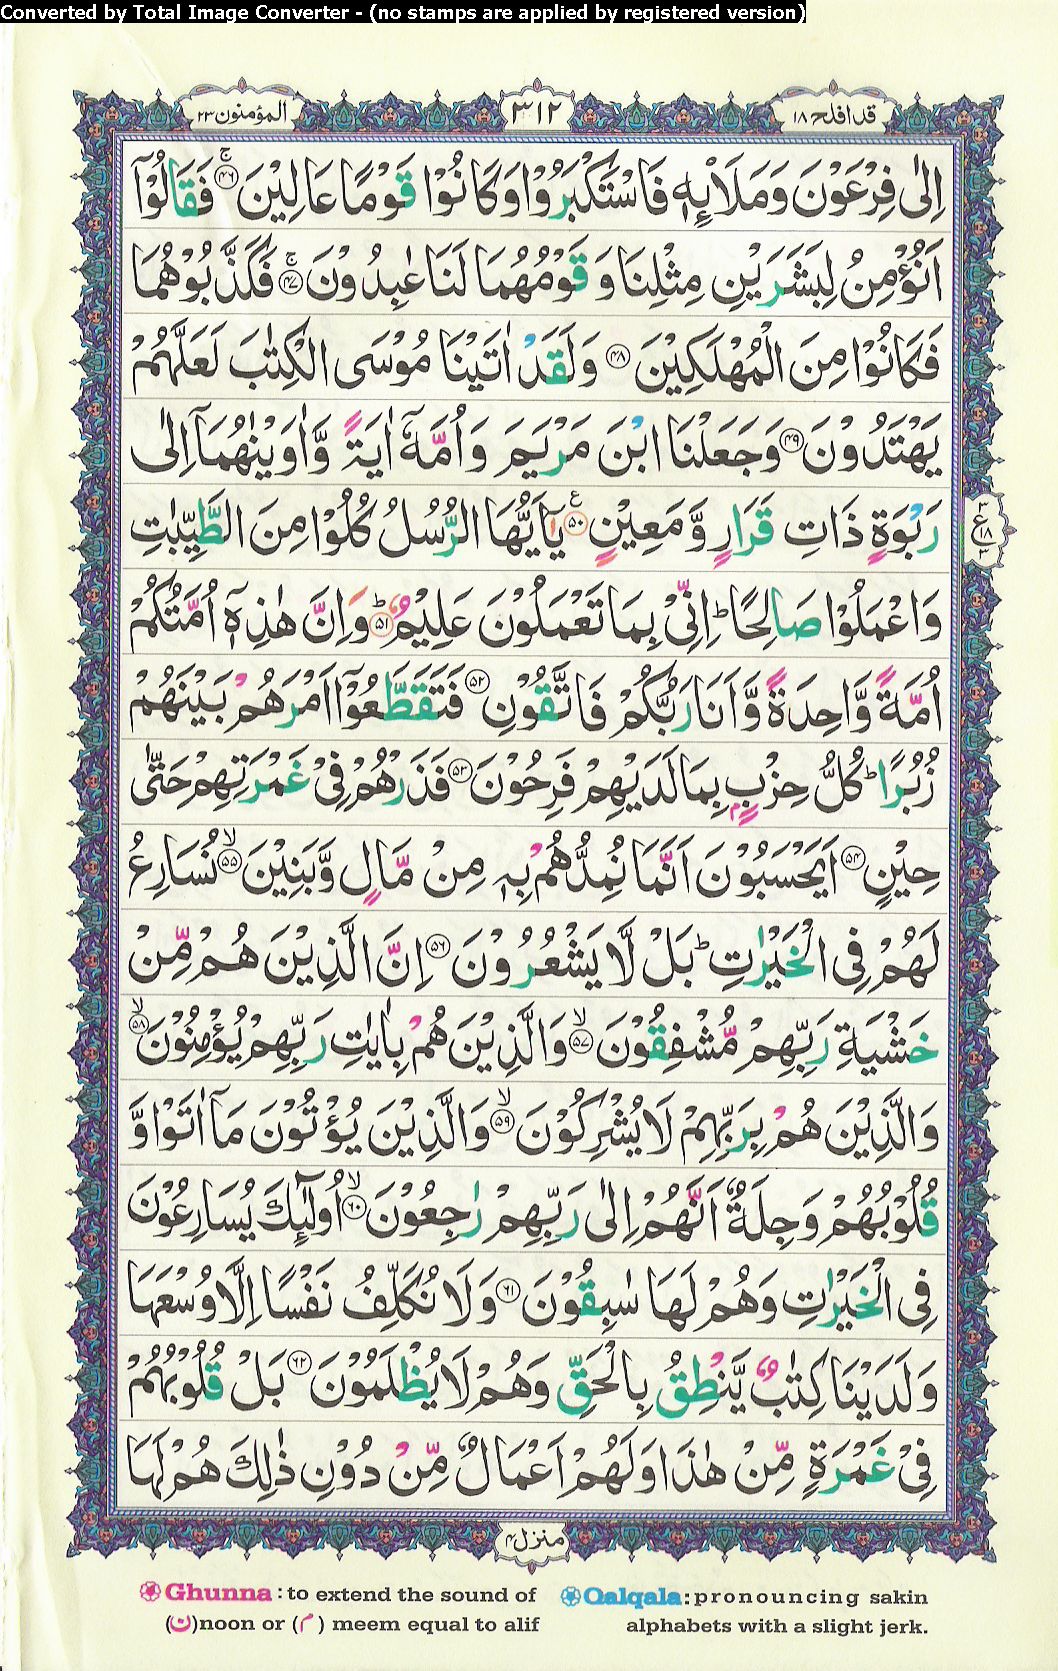 Converted by Total Image Converter - (no stamps are applied by registered version)
قد افلح ١٨
٣١٢
المؤمنون ٢٣
اِلٰى فِرْعَوْنَ وَمَلَا۟ئِهٖ فَاسْتَكْبَرُوْا وَكَانُوْا قَوْمًا عَالِيْنَ ۚ۴۶ فَقَالُوْٓا
اَنُؤْمِنُ لِبَشَرَيْنِ مِثْلِنَا وَ قَوْمُهُمَا لَنَا عٰبِدُوْنَ ۚ۴۷ فَكَذَّبُوْهُمَا
فَكَانُوْا مِنَ الْمُهْلَكِيْنَ ۴۸ وَلَقَدْ اٰتَيْنَا مُوْسَى الْكِتٰبَ لَعَلَّهُمْ
يَهْتَدُوْنَ ۴۹ وَجَعَلْنَا ابْنَ مَرْيَمَ وَاُمَّهٗٓ اٰيَةً وَّاٰوَيْنٰهُمَآ اِلٰى
رَبْوَةٍ ذَاتِ قَرَارٍ وَّمَعِيْنٍ ۵۰ ع يٰٓاَيُّهَا الرُّسُلُ كُلُوْا مِنَ الطَّيِّبٰتِ
وَاعْمَلُوْا صَالِحًا ؕ اِنِّىْ بِمَا تَعْمَلُوْنَ عَلِيْمٌ ؕ۵۱ وَاِنَّ هٰذِهٖٓ اُمَّتُكُمْ
اُمَّةً وَّاحِدَةً وَّاَنَا رَبُّكُمْ فَاتَّقُوْنِ ۵۲ فَتَقَطَّعُوْٓا اَمْرَهُمْ بَيْنَهُمْ
زُبُرًا ؕ كُلُّ حِزْبٍۢ بِمَا لَدَيْهِمْ فَرِحُوْنَ ۵۳ فَذَرْهُمْ فِىْ غَمْرَتِهِمْ حَتّٰى
حِيْنٍ ۵۴ اَيَحْسَبُوْنَ اَنَّمَا نُمِدُّهُمْ بِهٖ مِنْ مَّالٍ وَّبَنِيْنَ ۙ۵۵ نُسَارِعُ
لَهُمْ فِى الْخَيْرٰتِ ؕ بَلْ لَّا يَشْعُرُوْنَ ۵۶ اِنَّ الَّذِيْنَ هُمْ مِّنْ
خَشْيَةِ رَبِّهِمْ مُّشْفِقُوْنَ ۙ۵۷ وَالَّذِيْنَ هُمْ بِاٰيٰتِ رَبِّهِمْ يُؤْمِنُوْنَ ۙ۵۸
وَالَّذِيْنَ هُمْ بِرَبِّهِمْ لَا يُشْرِكُوْنَ ۙ۵۹ وَالَّذِيْنَ يُؤْتُوْنَ مَآ اٰتَوْا وَّ
قُلُوْبُهُمْ وَجِلَةٌ اَنَّهُمْ اِلٰى رَبِّهِمْ رٰجِعُوْنَ ۙ۶۰ اُولٰٓئِكَ يُسَارِعُوْنَ
فِى الْخَيْرٰتِ وَهُمْ لَهَا سٰبِقُوْنَ ۶۱ وَلَا نُكَلِّفُ نَفْسًا اِلَّا وُسْعَهَا
وَلَدَيْنَا كِتٰبٌ يَّنْطِقُ بِالْحَقِّ وَهُمْ لَا يُظْلَمُوْنَ ۶۲ بَلْ قُلُوْبُهُمْ
فِىْ غَمْرَةٍ مِّنْ هٰذَا وَلَهُمْ اَعْمَالٌ مِّنْ دُوْنِ ذٰلِكَ هُمْ لَهَا
۳
ع
۱۸
۳
منزل ۴
Ghunna : to extend the sound of
(ن)noon or (م) meem equal to alif
Qalqala: pronouncing sakin
alphabets with a slight jerk.